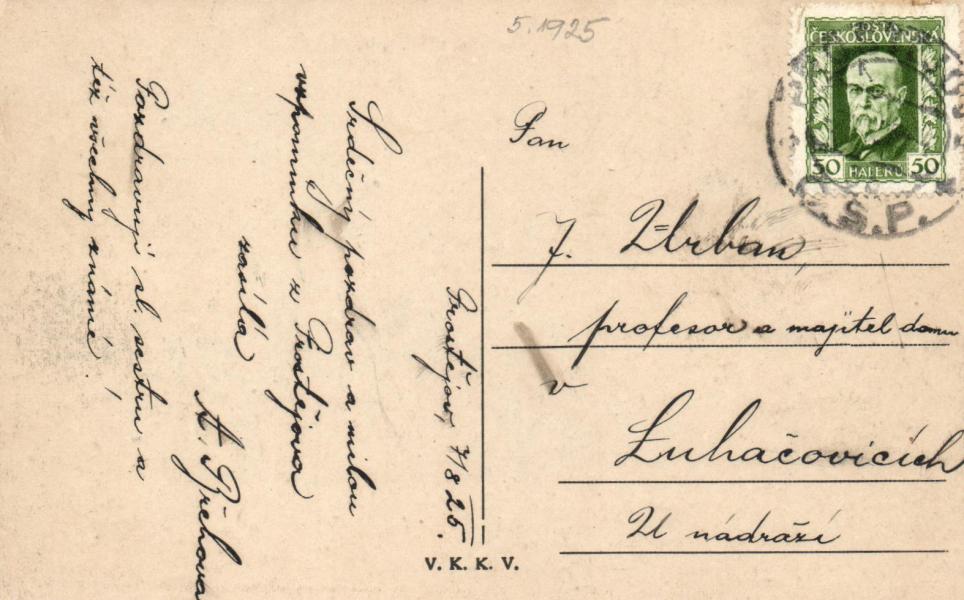 5.1925
POSTA
ČESKOSLOVENSKÁ
50 HALÉŘŮ 50
Č.S.P.
Prostějov, 7/8 25.
Srdečný pozdrav a milou
vzpomínku z Prostějova
zasílá
A. Břehova
Pozdravuji sl. sestru a
též všechny známé.
Pan
J. Urban,
profesor a majitel domu
v
Luhačovicích
U nádraží
V. K. K. V.